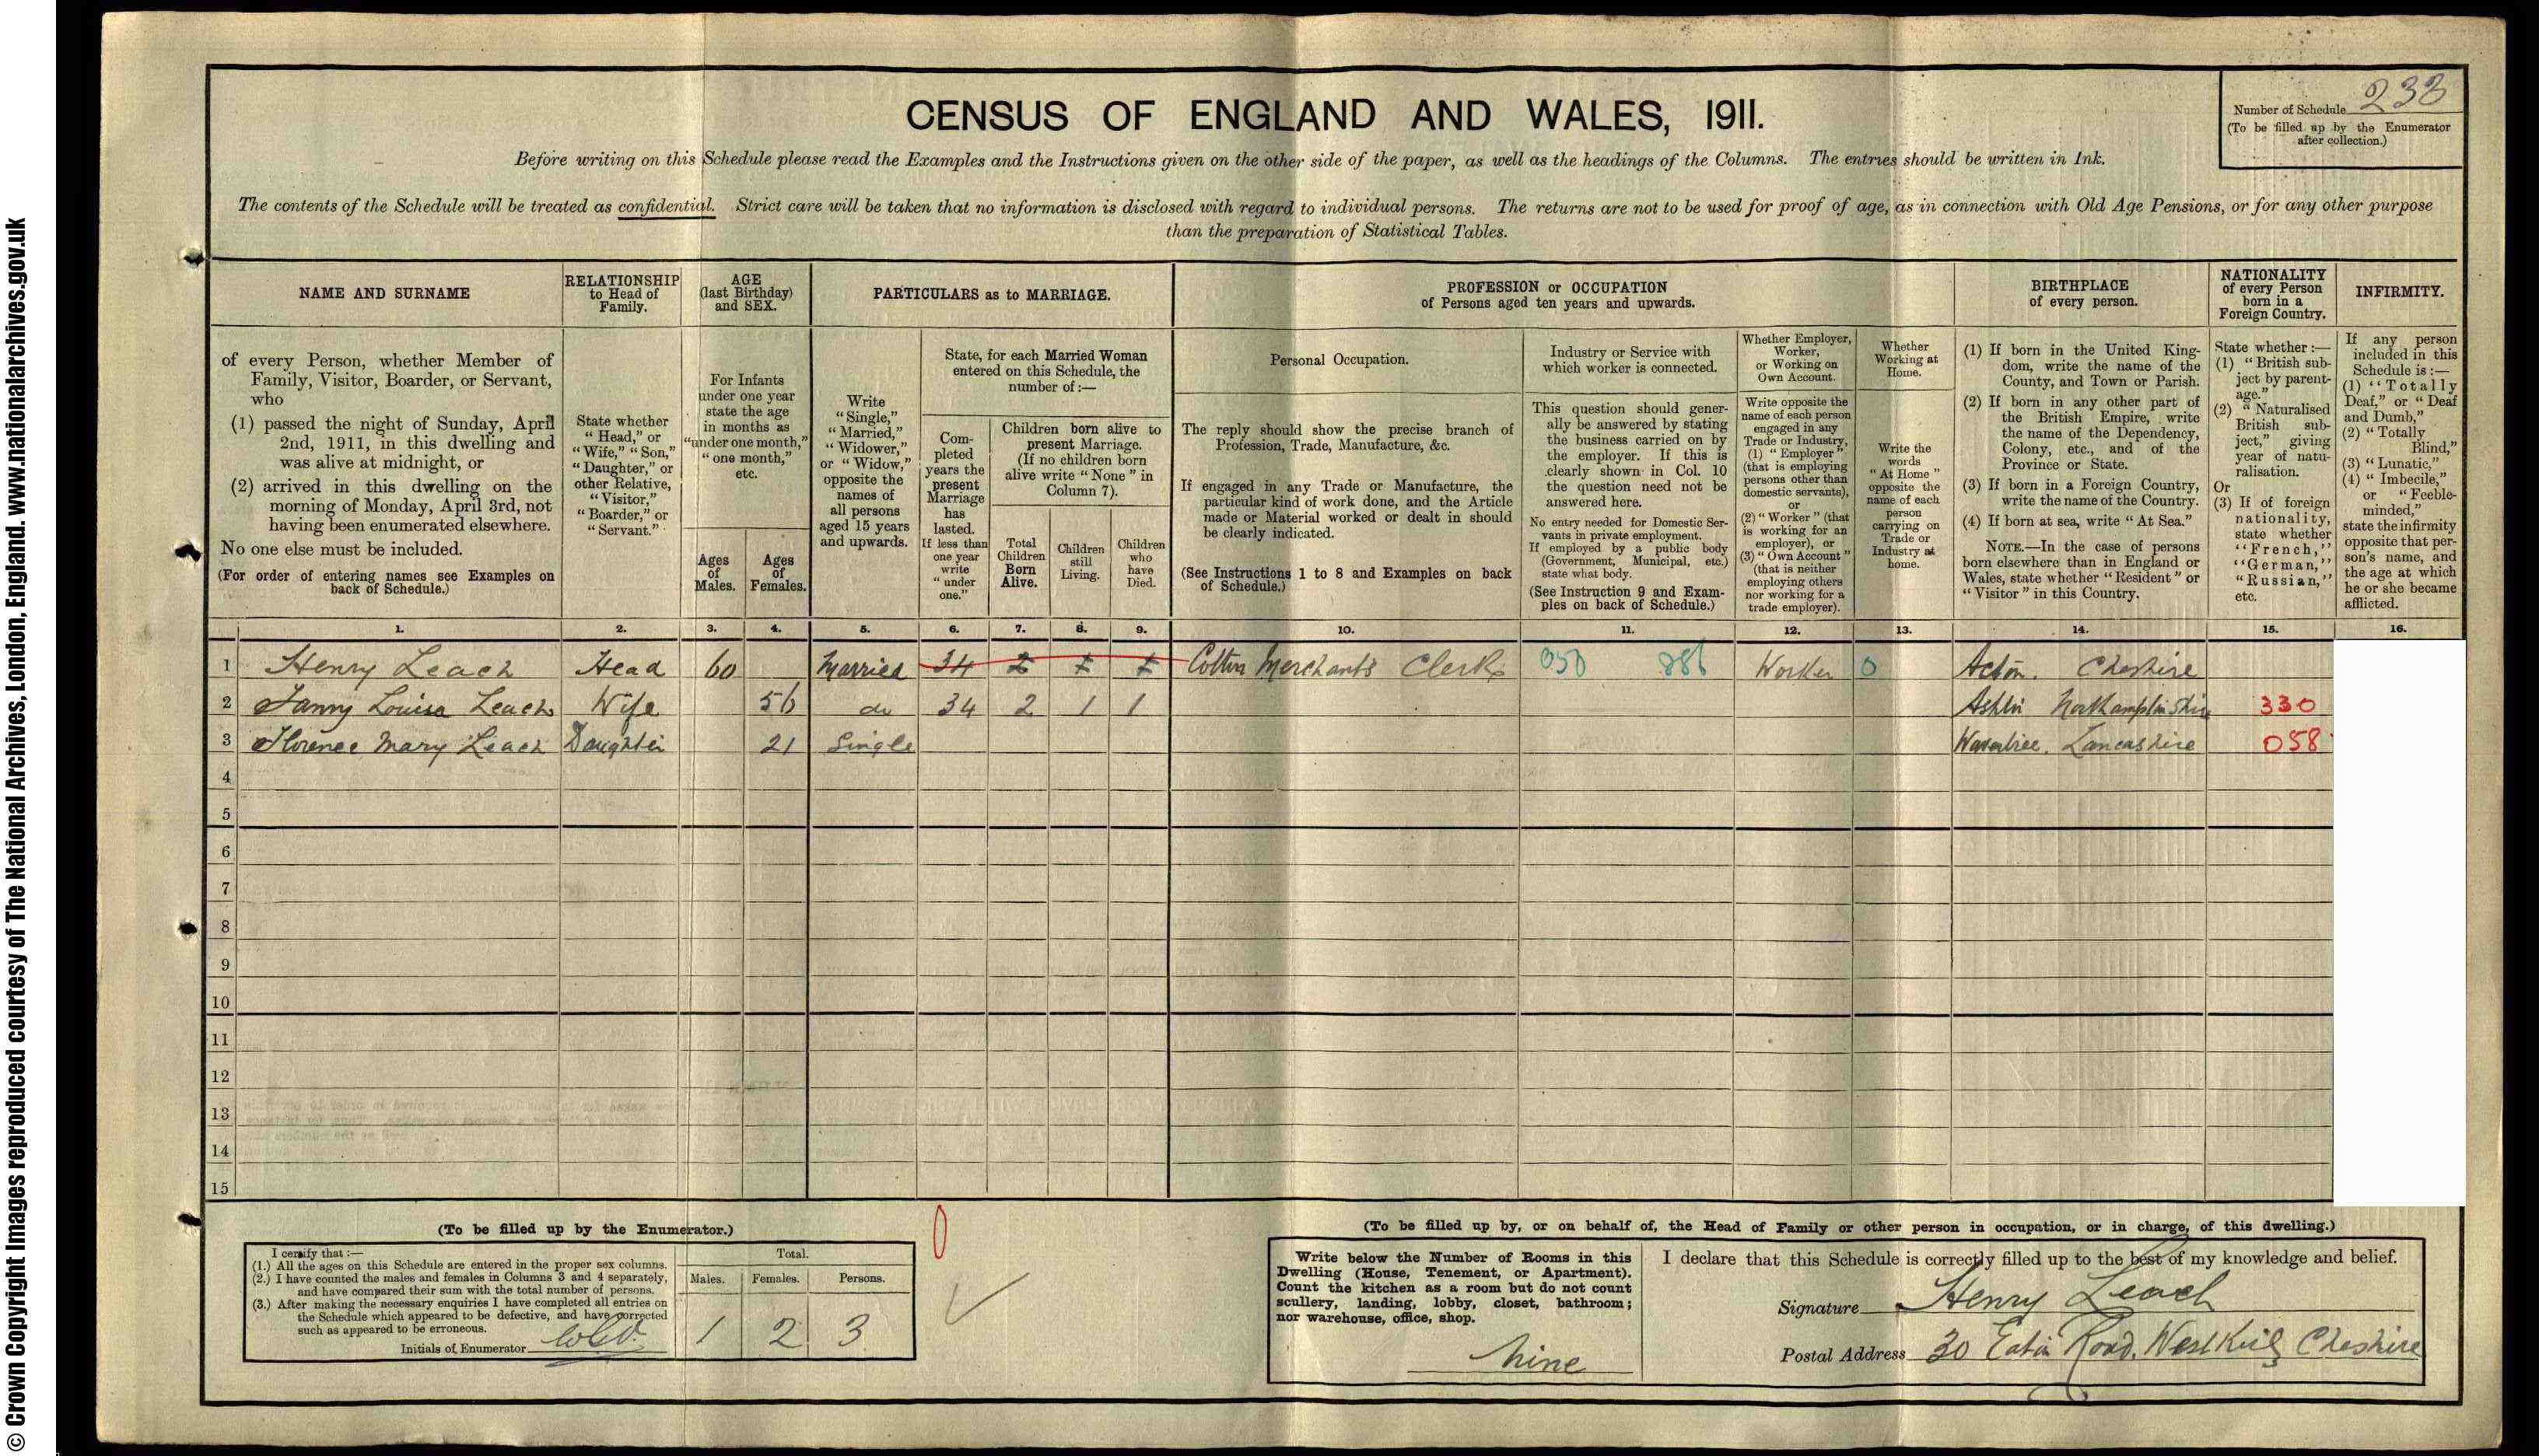 CENSUS OF ENGLAND AND WALES, 1911.
Number of Schedule 233
(To be filled up by the Enumerator
after collection.)
Before writing on this Schedule please read the Examples and the Instructions given on the other side of the paper, as well as the headings of the Columns. The entries should be written in Ink.
The contents of the Schedule will be treated as confidential. Strict care will be taken that no information is disclosed with regard to individual persons. The returns are not to be used for proof of age, as in connection with Old Age Pensions, or for any other purpose
than the preparation of Statistical Tables.
NAME AND SURNAME
of every Person, whether Member of
Family, Visitor, Boarder, or Servant,
who
(1) passed the night of Sunday, April
2nd, 1911, in this dwelling and
was alive at midnight, or
(2) arrived in this dwelling on the
morning of Monday, April 3rd, not
having been enumerated elsewhere.
No one else must be included.
(For order of entering names see Examples on
back of Schedule.)
RELATIONSHIP
to Head of
Family.
State whether
"Head," or
"Wife," "Son,"
"Daughter," or
other Relative,
"Visitor,"
"Boarder," or
"Servant."
AGE
(last Birthday)
and SEX.
For Infants
under one year
state the age
in months as
"under one month,"
"one month,"
etc.
Ages
of
Males.
Ages
of
Females.
PARTICULARS as to MARRIAGE.
Write
"Single,"
"Married,"
"Widower,"
or "Widow,"
opposite the
names of
all persons
aged 15 years
and upwards.
State, for each Married Woman
entered on this Schedule, the
number of:—
Com-
pleted
years the
present
Marriage
has
lasted.
If less than
one year
write
"under
one."
Children born alive to
present Marriage.
(If no children born
alive write "None" in
Column 7).
Total
Children
Born
Alive.
Children
still
Living.
Children
who
have
Died.
PROFESSION or OCCUPATION
of Persons aged ten years and upwards.
Personal Occupation.
The reply should show the precise branch of
Profession, Trade, Manufacture, &c.
If engaged in any Trade or Manufacture, the
particular kind of work done, and the Article
made or Material worked or dealt in should
be clearly indicated.
(See Instructions 1 to 8 and Examples on back
of Schedule.)
Industry or Service with
which worker is connected.
This question should gener-
ally be answered by stating
the business carried on by
the employer. If this is
clearly shown in Col. 10
the question need not be
answered here.
No entry needed for Domestic Ser-
vants in private employment.
If employed by a public body
(Government, Municipal, etc.)
state what body.
(See Instruction 9 and Exam-
ples on back of Schedule.)
Whether Employer,
Worker,
or Working on
Own Account.
Write opposite the
name of each person
engaged in any
Trade or Industry,
(1) "Employer"
(that is employing
persons other than
domestic servants),
or
(2) "Worker" (that
is working for an
employer), or
(3) "Own Account"
(that is neither
employing others
nor working for a
trade employer).
Whether
Working at
Home.
Write the
words
"At Home"
opposite the
name of each
person
carrying on
Trade or
Industry at
home.
BIRTHPLACE
of every person.
(1) If born in the United King-
dom, write the name of the
County, and Town or Parish.
(2) If born in any other part of
the British Empire, write
the name of the Dependency,
Colony, etc., and of the
Province or State.
(3) If born in a Foreign Country,
write the name of the Country.
(4) If born at sea, write "At Sea."
NOTE.—In the case of persons
born elsewhere than in England or
Wales, state whether "Resident" or
"Visitor" in this Country.
NATIONALITY
of every Person
born in a
Foreign Country.
State whether:—
(1) "British sub-
ject by parent-
age."
(2) "Naturalised
British sub-
ject," giving
year of natu-
ralisation.
Or
(3) If of foreign
nationality,
state whether
"French,"
"German,"
"Russian,"
etc.
INFIRMITY.
If any person
included in this
Schedule is:—
(1) "Totally
Deaf," or "Deaf
and Dumb,"
(2) "Totally
Blind,"
(3) "Lunatic,"
(4) "Imbecile,"
or "Feeble-
minded,"
state the infirmity
opposite that per-
son's name, and
the age at which
he or she became
afflicted.
1. 2. 3. 4. 5. 6. 7. 8. 9. 10. 11. 12. 13. 14. 15. 16.
1 Henry Leach Head 60 Married 34 2 1 1 Cotton Merchants Clerk 050 886 Worker 0 Acton. Cheshire
2 Fanny Louisa Leach Wife 56 do 34 2 1 1 Ashton Northamptonshire 330
3 Florence Mary Leach Daughter 21 Single Wavertree. Lancashire 058
4
5
6
7
8
9
10
11
12
13
14
15
(To be filled up by the Enumerator.)
I certify that:—
(1.) All the ages on this Schedule are entered in the proper sex columns.
(2.) I have counted the males and females in Columns 3 and 4 separately,
and have compared their sum with the total number of persons.
(3.) After making the necessary enquiries I have completed all entries on
the Schedule which appeared to be defective, and have corrected
such as appeared to be erroneous.
Initials of Enumerator
Total.
Males. Females. Persons.
1 2 3
0
(To be filled up by, or on behalf of, the Head of Family or other person in occupation, or in charge, of this dwelling.)
Write below the Number of Rooms in this
Dwelling (House, Tenement, or Apartment).
Count the kitchen as a room but do not count
scullery, landing, lobby, closet, bathroom;
nor warehouse, office, shop.
Nine
I declare that this Schedule is correctly filled up to the best of my knowledge and belief.
Signature Henry Leach
Postal Address 30 Eaton Road. West Kirby Cheshire
© Crown Copyright Images reproduced courtesy of The National Archives, London, England. www.nationalarchives.gov.uk